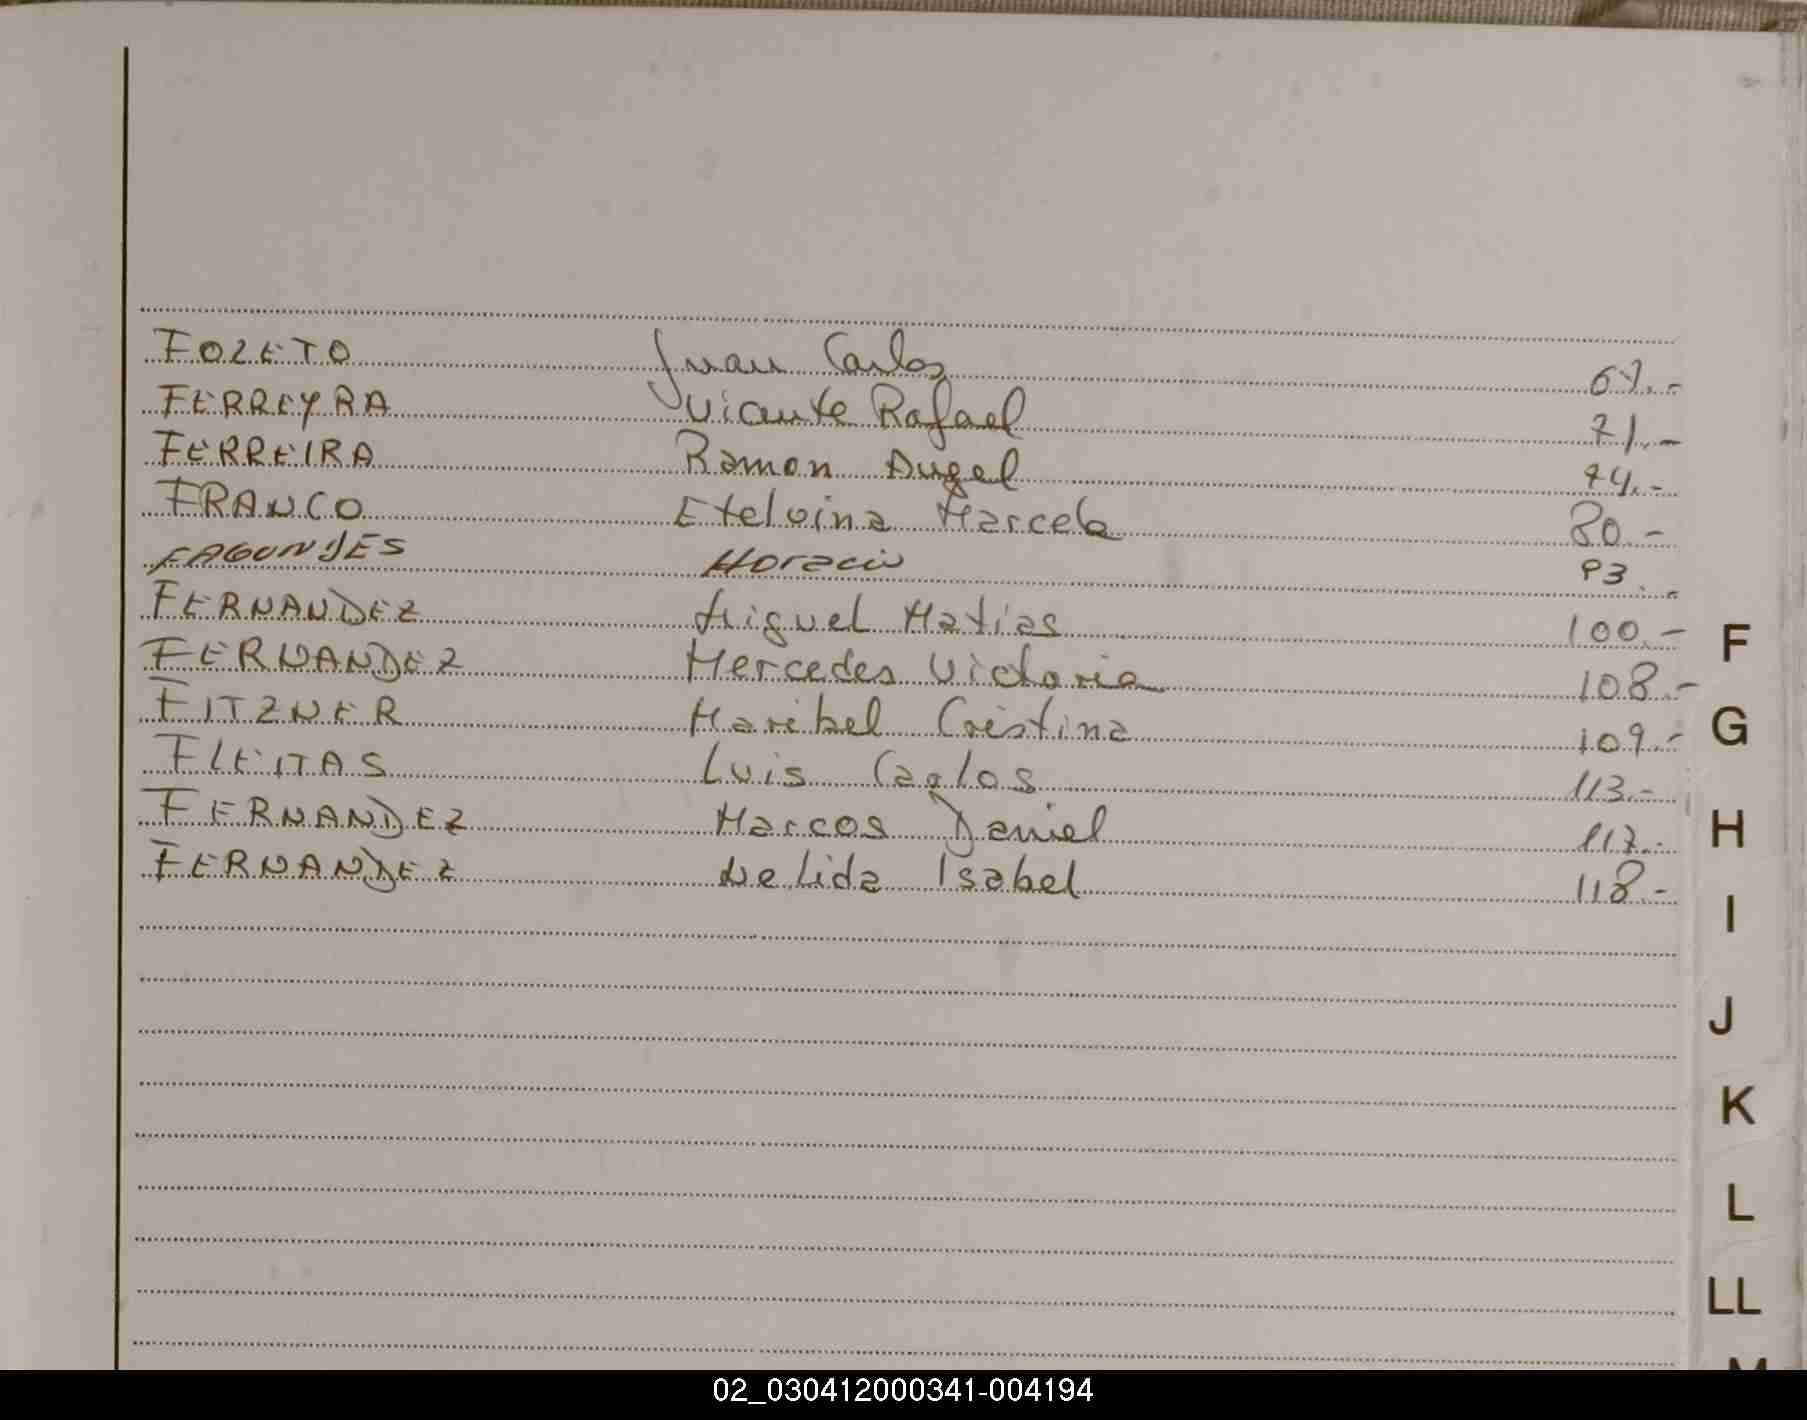 FOZETO Juan Carlos 67.-
FERREYRA Vicente Rafael 71.-
FERREIRA Ramon Angel 74.-
FRANCO Etelvina Marcela 80.-
FAGUNDES Horacio 93.-
FERNANDEZ Miguel Matias 100.-
FERNANDEZ Mercedes Victoria 108.-
FITZNER Maribel Cristina 109.-
FLEITAS Luis Carlos 113.-
FERNANDEZ Marcos Daniel 117.-
FERNANDEZ Nelida Isabel 118.-
F
G
H
I
J
K
L
LL
M
02_030412000341-004194